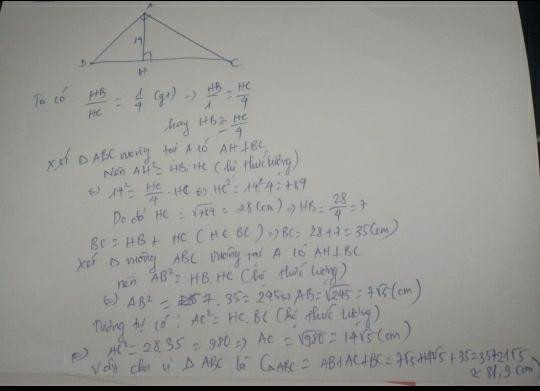 A
14
B H C
Ta có HB/HC = 1/4 (gt) => HB/1 = HC/4
hay HB = HC/4
Xét Δ ABC vuông tại A có AH⊥BC
Nên AH² = HB.HC (hệ thức lượng)
⇔ 14² = HC/4 . HC ⇔ HC² = 14².4 = 784
Do đó HC = √784 = 28 (cm) => HB = 28/4 = 7
BC = HB + HC (H ∈ BC) => BC = 28+7 = 35 (cm)
Xét Δ vuông ABC vuông tại A có AH⊥BC
nên AB² = HB.HC (hệ thức lượng)
⇔ AB² = 7.35 = 245 ⇔ AB = √245 = 7√5 (cm)
Tương tự có : AC² = HC.BC (hệ thức lượng)
⇔ AC² = 28.35 = 980 => AC = √980 = 14√5 (cm)
Vậy chu vi Δ ABC là C ΔABC = AB+AC+BC = 7√5+14√5+35 = 35+21√5
≈ 81,9 (cm)